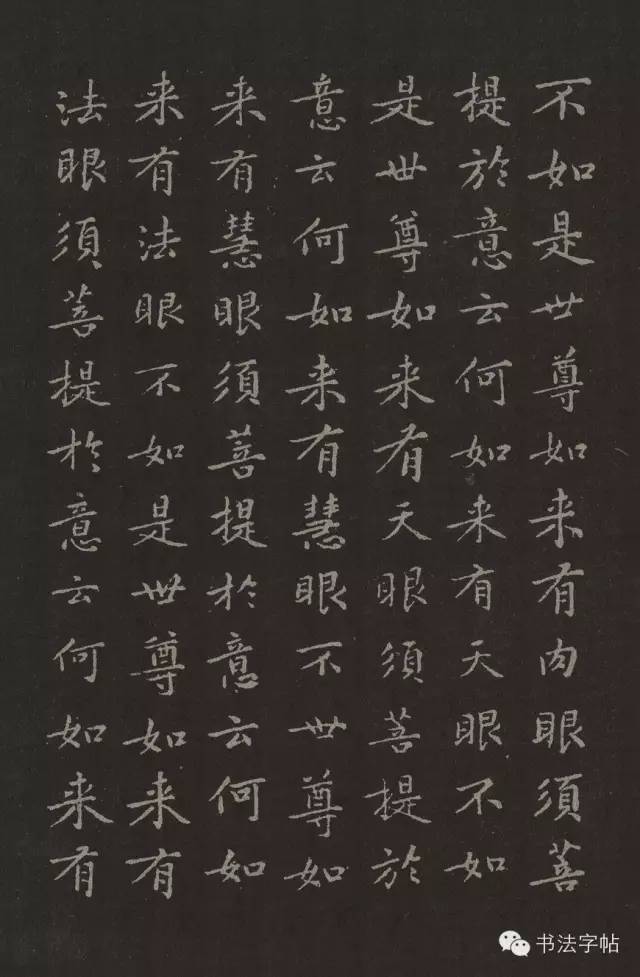 不如是世尊如来有内眼須菩
提於意云何如来有天眼不如
是世尊如来有天眼須菩提於
意云何如来有慧眼不世尊如
来有慧眼須菩提於意云何如
来有法眼不如是世尊如来有
法眼須菩提於意云何如来有
书法字帖